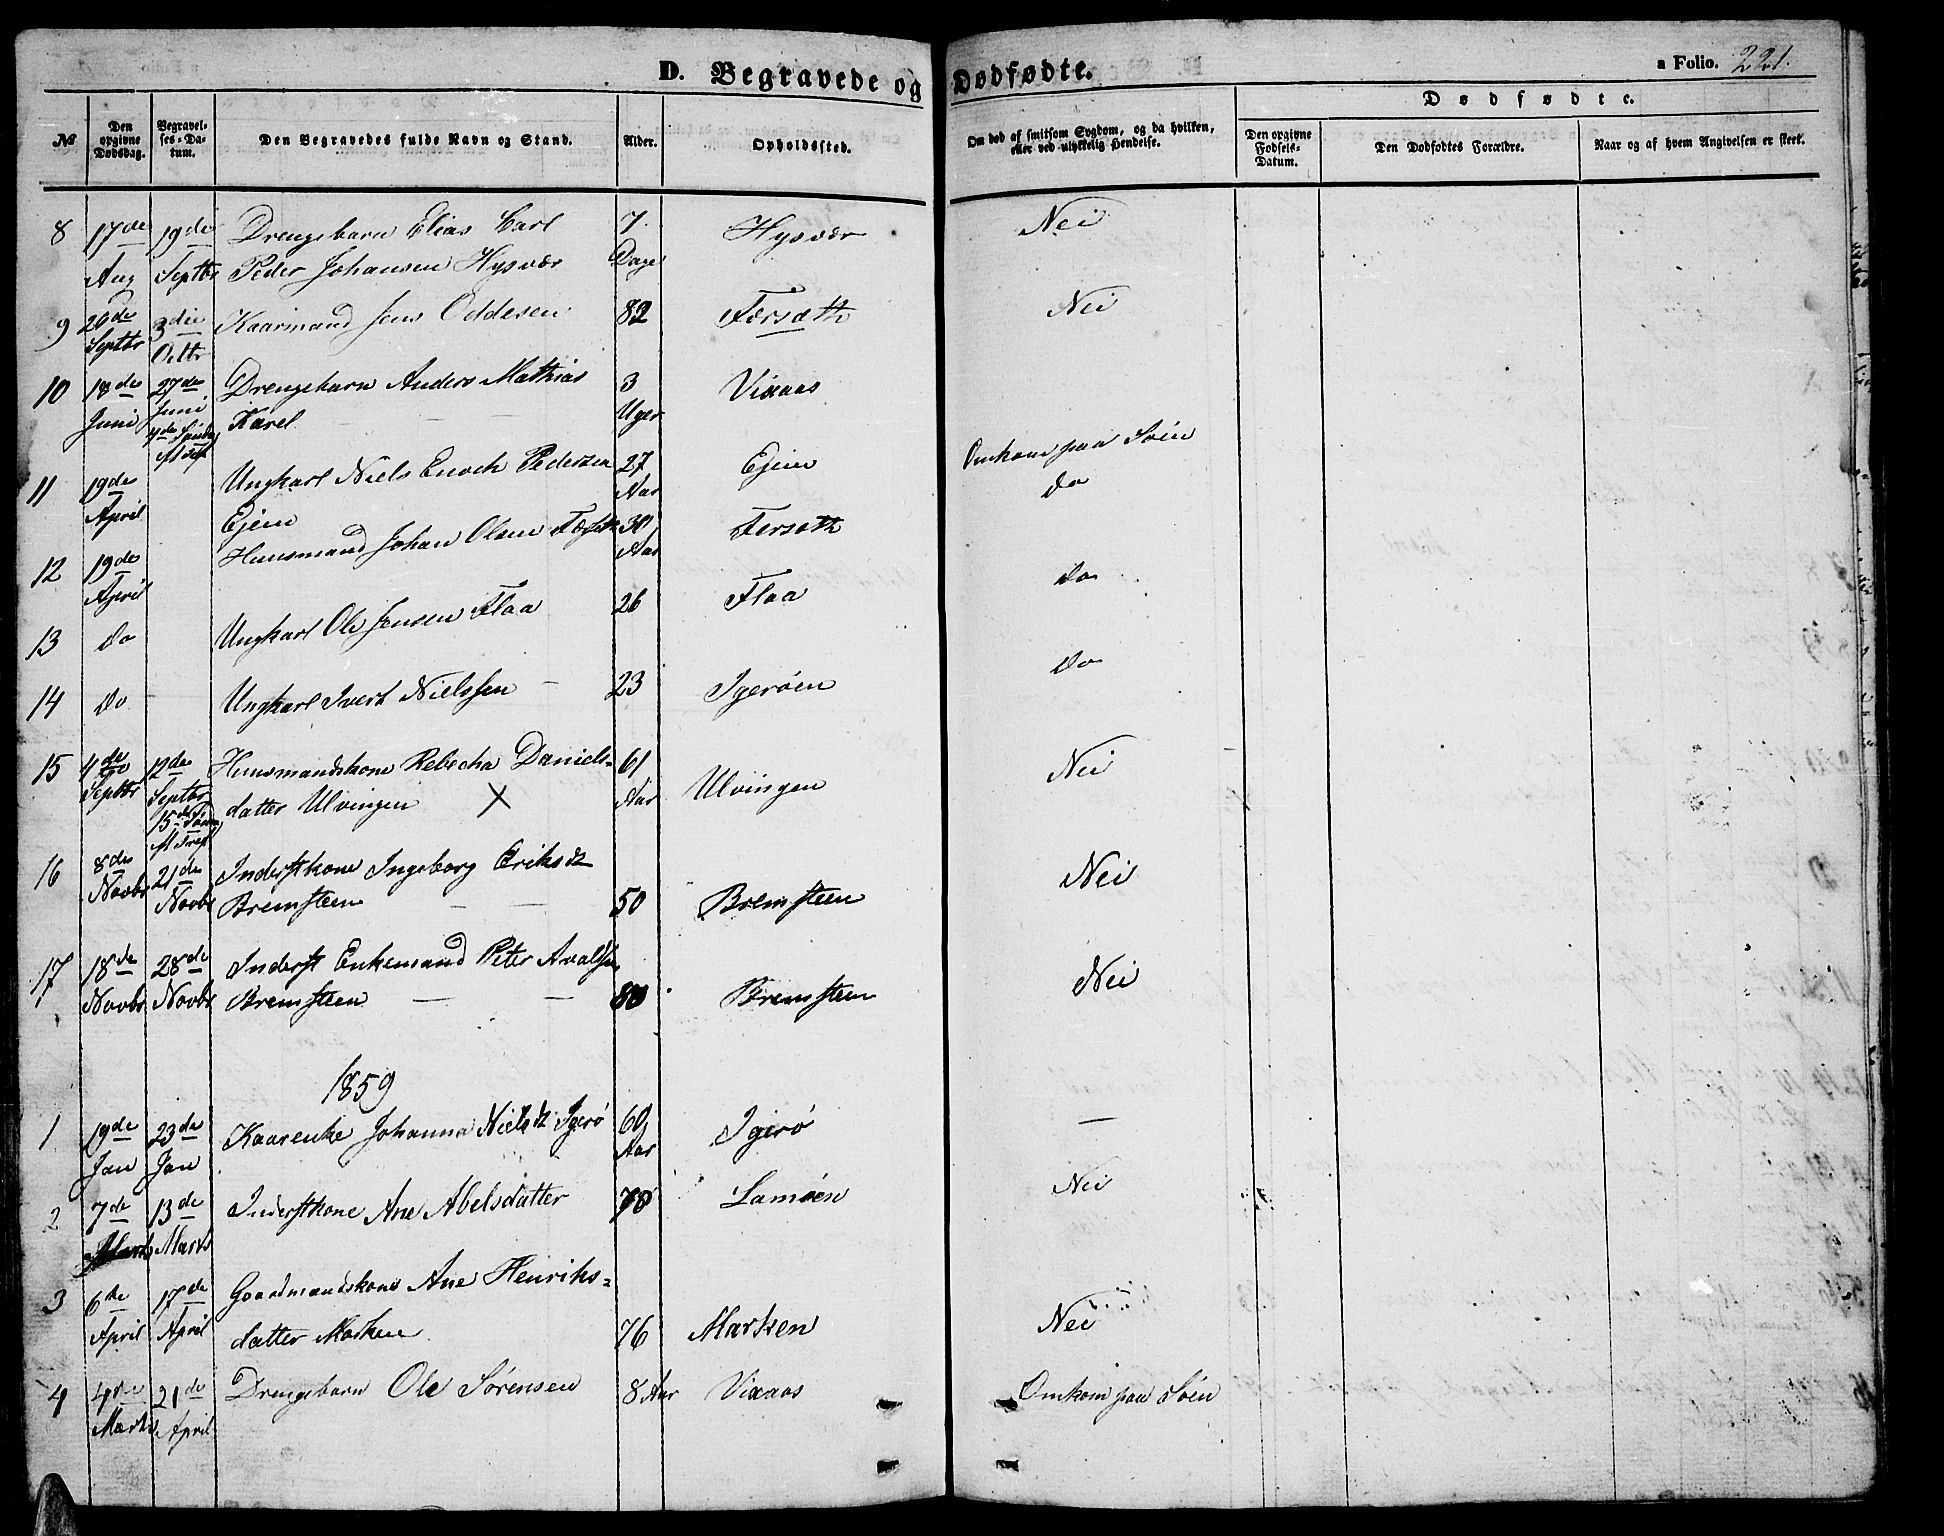 D. Begravede og Dødfødte.
a Folio. 221.
№
Den opgivne Dødsdag.
Begravelses-Datum.
Den Begravedes fulde Navn og Stand.
Alder.
Opholdssted.
Om død af smitsom Sygdom, og da hvilken, eller ved ulykkelig Hendelse.
Dødfødte.
Den opgivne Fødsels-Datum.
Den Dødfødtes Forældre.
Naar og af hvem Angivelsen er skeet.
8 17de 19die Drengebarn Elias Carl 7. Hysvær Nei
Aug Septbr Peder Johansen Hysvær Dage
9 20de 3die Kaarmand Jens Oddesen 82 Forsæth Nei
Septbr Octbr
10 18de 27de Drengebarn Anders Mathias 3 Vixaas
Juni Juni Karel Uger
11 19de Ungkarl Niels Enoch Pedersen 27 Ejem Omkom paa Søen
April Ejem Aar
12 19de Huusmand Johan Olsen 30 Forsæth do
April Aar
13 do Ungkarl Ole Jensen Flaa 26 Flaa do
14 do Ungkarl Ivert Nielssen 23 Igerøen do
15 4de 12de Huusmandskone Rebecha Daniels- 61 Ulvingen Nei
Septbr Septbr datter Ulvingen X Aar
16 8de 21de Inderstkone Ingeborg Eriksdt Nei
Novbr Novbr Bremsteen 50 Bremsteen
17 18de 28de Inderst Enkemand Peter Nei
Novbr Novbr Bremsteen 80 Bremsteen
1859
1 19de 23de Kaarenke Johanna Nielsdt Igerø 60 Igerø —
Jan Jan Aar
2 7de 13de Inderstkone Ane Abelsdatter 70 Lamøen Nei
Marts Marts
3 6de 17de Gaardmandskone Ane Henriks-
April April datter Marken 76 Marken Nei
4 4de 21de Drengebarn Ole Sørensen 8 Aar Vixaas Omkom paa Søen
Marts April